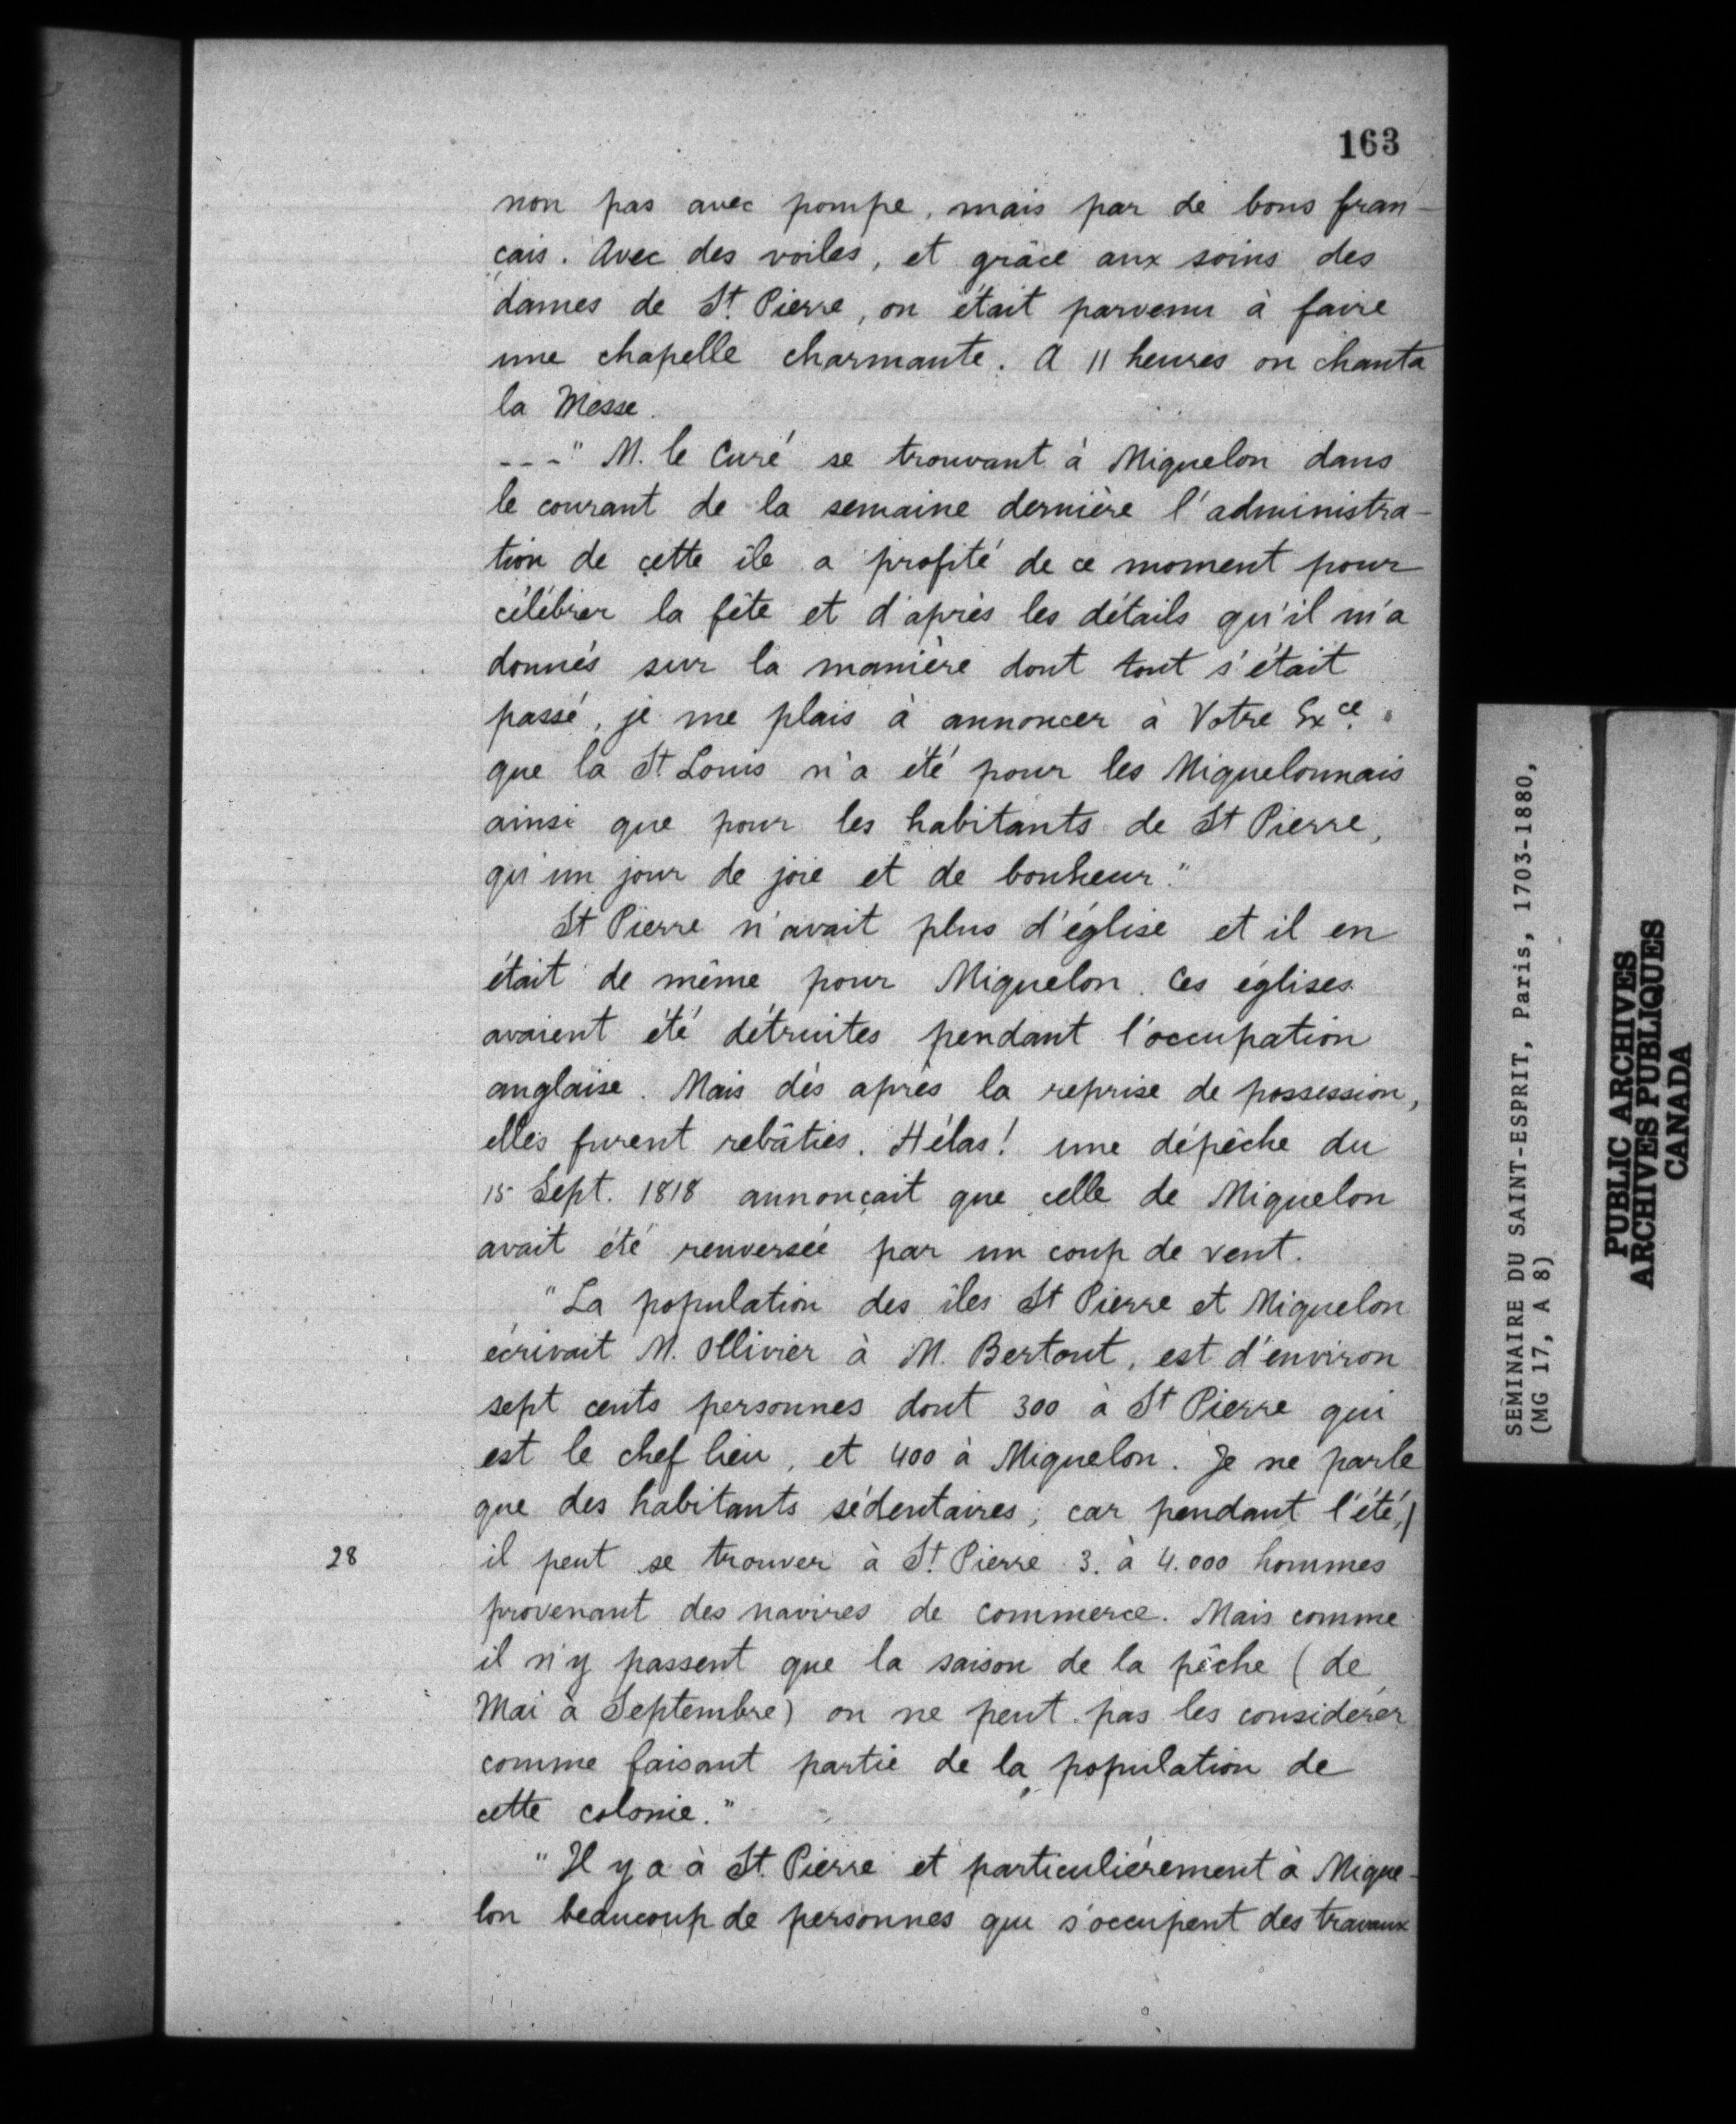 163
non pas avec pompe, mais par de bons fran-
çais. Avec des voiles, et grâce aux soins des
dames de St. Pierre, on était parvenu à faire
une chapelle charmante. A 11 heures on chanta
la Messe.
---" M. le Curé se trouvant à Miquelon dans
le courant de la semaine dernière l'administra-
tion de cette île a profité de ce moment pour
célébrer la fête et d'après les détails qu'il m'a
donnés sur la manière dont tout s'était
passé, je me plais à annoncer à Votre Exce.
que la St Louis n'a été pour les Miquelonnais
ainsi que pour les habitants de St Pierre,
qu'un jour de joie et de bonheur."
St Pierre n'avait plus d'église et il en
était de même pour Miquelon. Ces églises
avaient été détruites pendant l'occupation
anglaise. Mais dès après la reprise de possession,
elles furent rebâties. Hélas! une dépêche du
15 Sept. 1818 annonçait que celle de Miquelon
avait été renversée par un coup de vent.
"La population des îles St Pierre et Miquelon
écrivait M. Ollivier à M. Bertout, est d'environ
sept cents personnes dont 300 à St Pierre qui
est le chef lieu, et 400 à Miquelon. Je ne parle
que des habitants sédentaires; car pendant l'été,/
28 il peut se trouver à St. Pierre 3. à 4.000 hommes
provenant des navires de commerce. Mais comme
il n'y passent que la saison de la pêche (de
Mai à Septembre) on ne peut pas les considérer
comme faisant partie de la population de
cette colonie."
"Il y a à St. Pierre et particulièrement à Mique-
lon beaucoup de personnes qui s'occupent des travaux
SEMINAIRE DU SAINT-ESPRIT, Paris, 1703-1880,
(MG 17, A 8)
PUBLIC ARCHIVES
ARCHIVES PUBLIQUES
CANADA